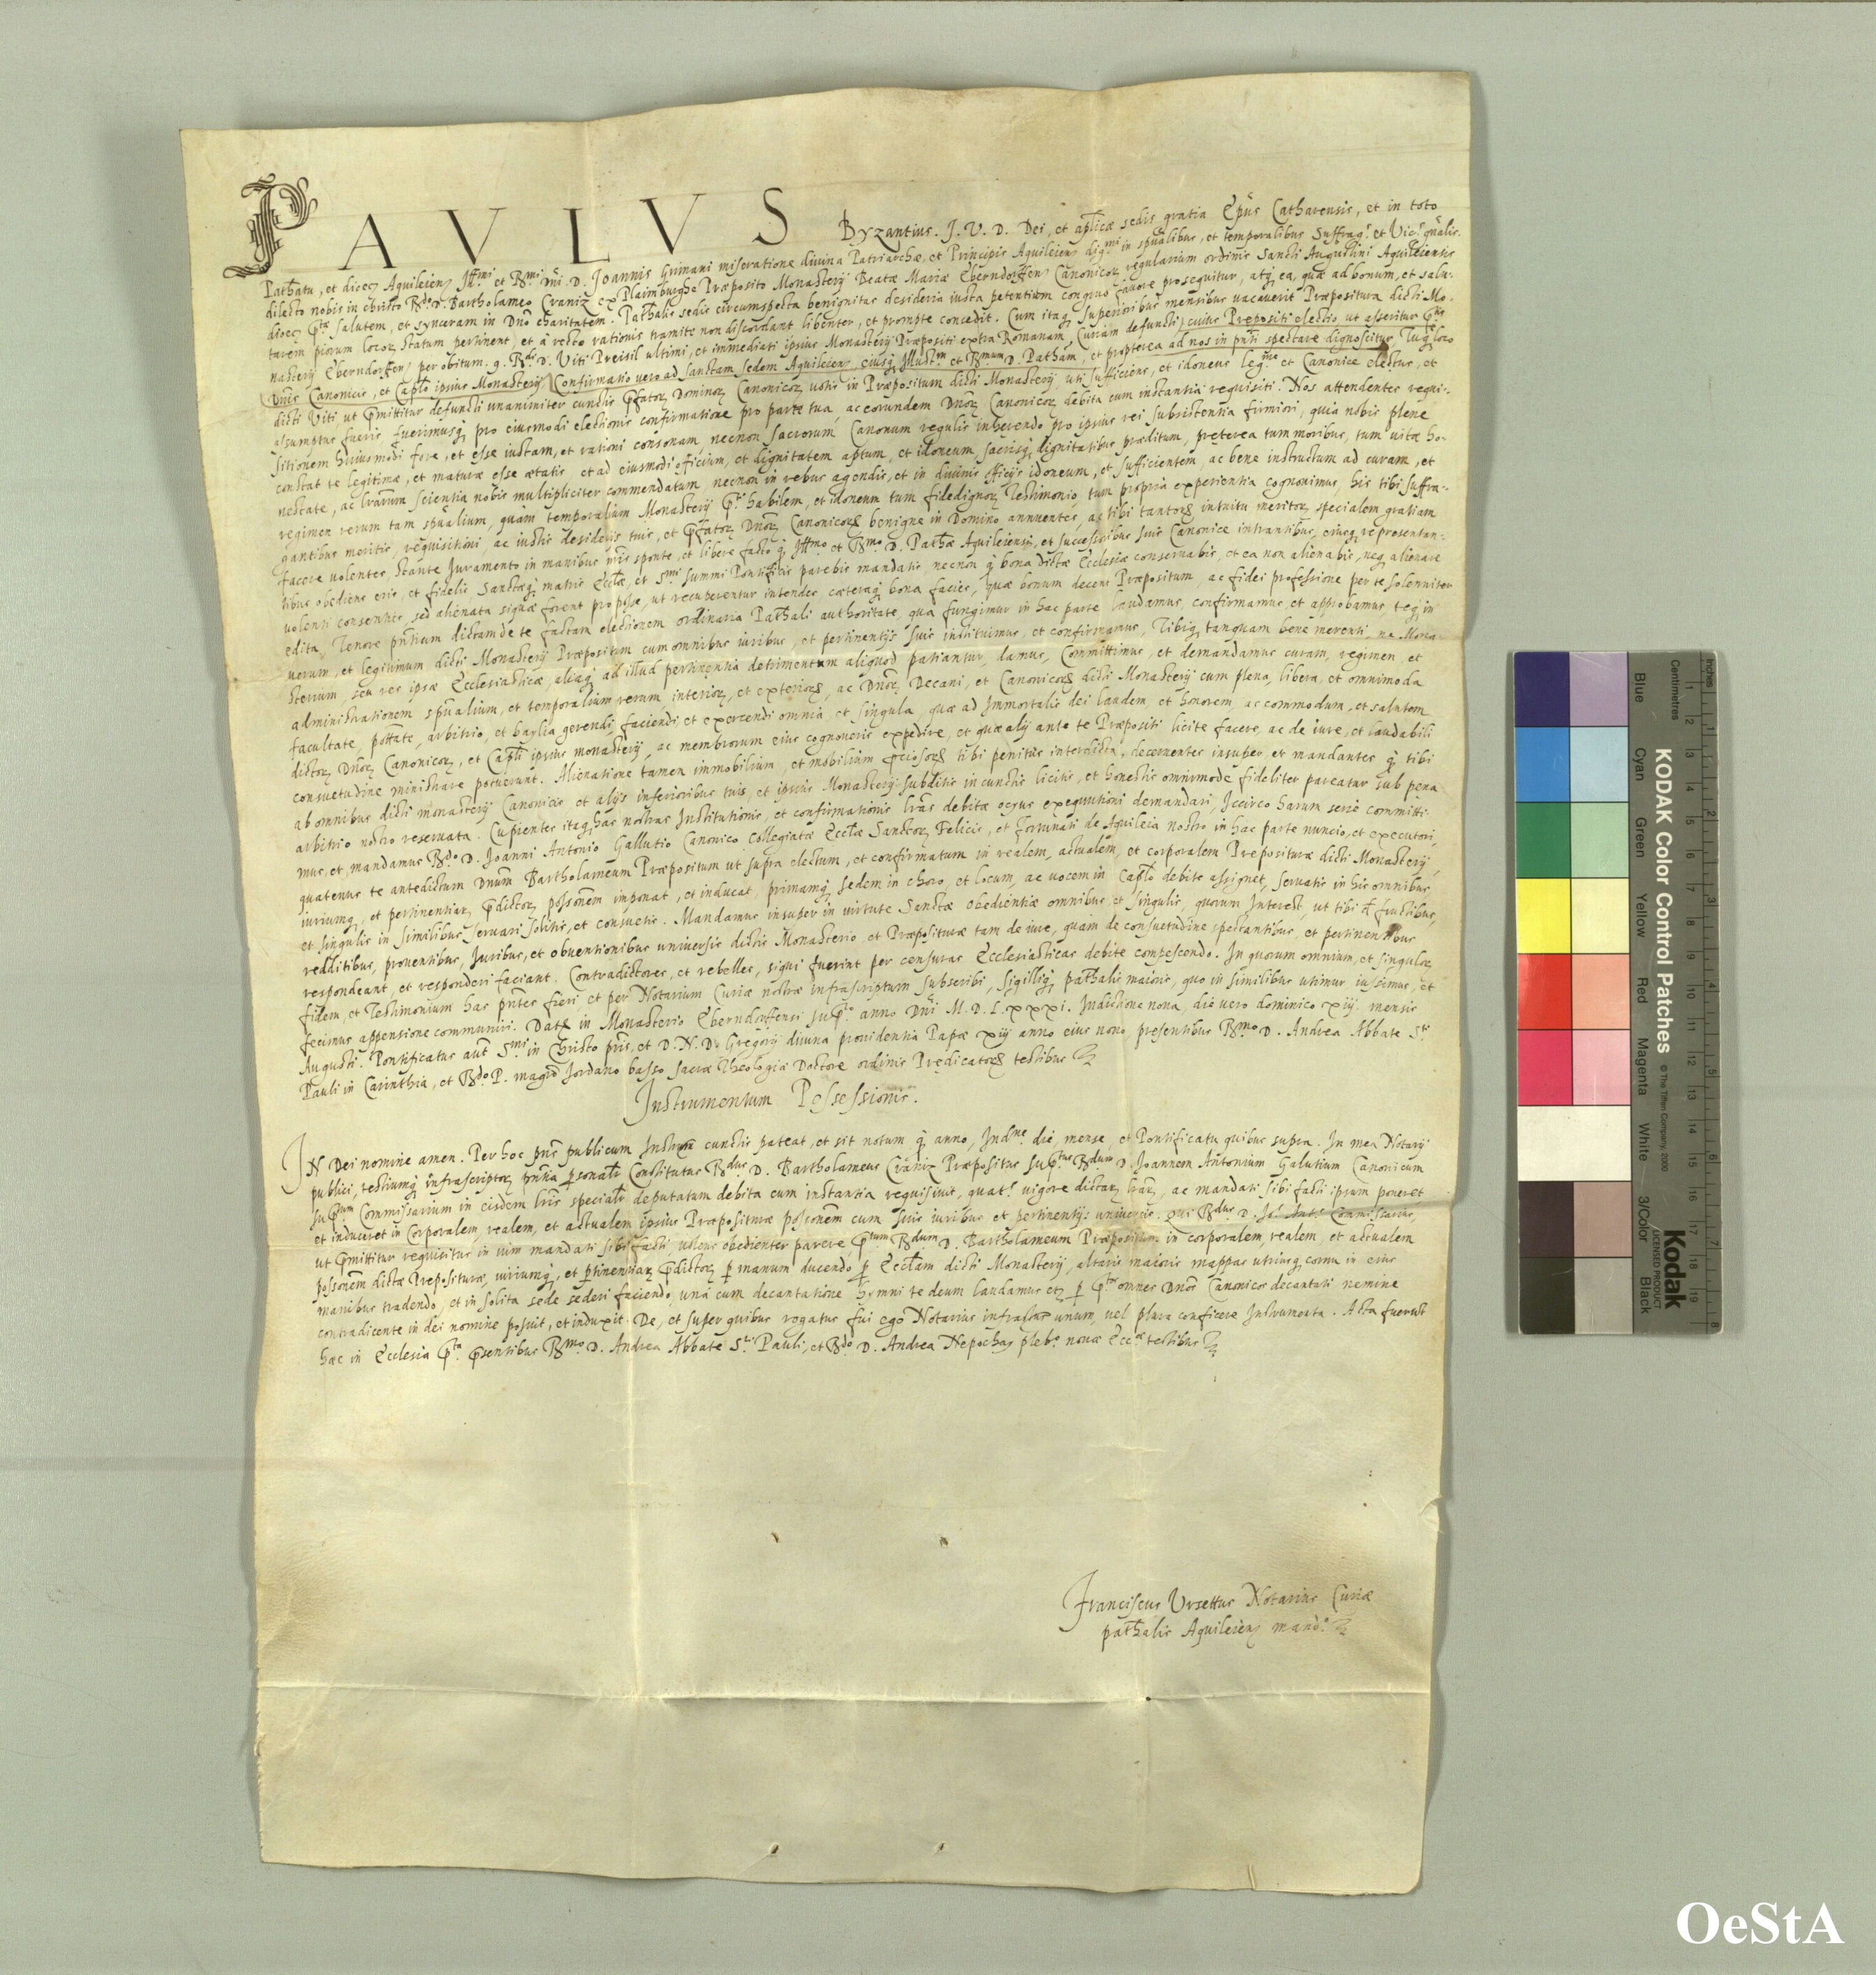 PAVLVS Byzantius. J. V. D. Dei, et aplicæ sedis gratia Epũs Catharensis, et in toto
Pathatu, et dioeç Aquileieñ Jllmi et Rmi Dñi D. Joannis Grimani miseratione divina Patriarchæ, et Principis Aquileieñ digmi in spũalibus, et temporalibus Suffrags et Vics gñalis.
dilecto nobis in christo Rdo D. Bartholameo Craniz ex Plaimburgho Præposito Monasterij Beatæ Mariæ Eberndorffeñ Canonicoꝝ regularium ordinis Sancti Augustini Aquileiensis
dioeç Pta salutem, et synceram in Dño charitatem. Pathalis sedis circumspecta benignitas desideria iusta petentium congruo favore prosequitur, atqꝫ ea, quæ ad bonum, et salu-
tarem piorum locoꝝ statum pertinent, et à recto rationis tramite non discordant libenter, et prompte concedit. Cum itaqꝫ superioribus mensibus vacaverit Præpositura dicti Mo-
nasterij Eberndorffeñ per obitum q. Rdi D. Viti Preisil ultimi, et immediati ipsius Monasterij Præpositi extra Romanam Curiam defuncti, cuius Prepositi electio ut asseritur Ptis
Dñis Canonicis, et Caplo ipsius Monasterij, Confirmatio vero ad sanctam sedem Aquileieñ eiusqꝫ Illustm et Rmum D. Patham, et propterea ad nos in pñti spectare dignoscitur, Tuqꝫ loco
dicti Viti ut Pmittitur defuncti unanimiter cunctis Pfatoꝝ Dominoꝝ Canonicoꝝ votis in Præpositum dicti Monasterij, uti sufficiens, et idoneus legme et Canonice electus, et
assumptus fueris, fuerimusqꝫ pro eiusmodi electionis confirmatione pro parte tua, ac eorundem Dñoꝝ Canonicoꝝ debita cum instantia requisiti. Nos attendentes requi-
sitionem huiusmodi fore, et esse iustam, et rationi consonam, necnon sacrorum Canonum regulis inherendo pro ipsius rei subsistentia firmiori, quia nobis plene
constat te legitimæ, et maturæ esse ætatis et ad eiusmodi officium, et dignitatem aptum, et idoneum, sacrisqꝫ dignitatibus præditum, preterea tum moribus, tum vitæ ho-
nestate, ac lrarum scientia nobis multipliciter commendatum, necnon in rebus agendis, et in divinis officijs idoneum, et sufficientem, ac bene instructum ad curam, et
regimen rerum tam spũalium, quam temporalium Monasterij Pti habilem, et idoneum tum fidedignoꝝ Testimonio, tum propria experientia cognovimus, his tibi suffra-
gantibus meritis, requisitioni, ac iustis desiderijs tuis, et Pfatoꝝ Dñoꝝ Canonicorꝫ benigne in Domino annuentes, ac tibi tantorꝫ intuitu meritoꝝ specialem gratiam
facere volentes, stante Juramento in manibus nris sponte, et libere facto qꝫ Jllmo et Rmo D. Pathæ Aquileiensi, et successoribus suis Canonice intrantibus, eiusqꝫ representan-
tibus obediens eris, et fidelis Sanctæqꝫ matris Eccłæ, et Smi summi Pontificis parebis mandatis necnon qꝫ bona dictæ Ecclesiæ conservabis, et ea non alienabis, neqꝫ alienare
volenti consenties, sed alienata siquæ forent pro posse, ut recuperentur intendes, cæteraqꝫ bona facies, quæ bonum decent Præpositum, ac fidei professione per te solemniter
edita, Tenore pñtium dictam de te factam electionem ordinaria Pathali authoritate, qua fungimur in hac parte laudamus, confirmamus, et approbamus, teqꝫ in
verum, et legitimum dicti Monasterij Præpositum cum omnibus iuribus, et pertinentijs suis instituimus, et confirmamus, Tibiqꝫ tanquam bene merenti, ne Mona-
sterium, seu res ipsæ Ecclesiasticæ, aliaqꝫ ad illud pertinentia detrimentum aliquod patiantur, damus, Committimus, et demandamus curam, regimen, et
administrationem spũalium, et temporalium rerum, interioꝝ, et exteriorꝫ, ac Dñoꝝ Decani, et Canonicorꝫ dicti Monasterij cum plena, libera, et omnimoda
facultate, pottate, arbitrio, et baylia gerendi, faciendi et exercendi omnia, et singula quæ ad Immortalis dei laudem, et honorem, ac commodum, et salutem
dictoꝝ Dñoꝝ Canonicoꝝ, et Capłi ipsius monasterij, ac membrorum eius cognoveris expedire, et quæ alij ante te Præpositi licite facere, ac de iure, et laudabili
consuetudine ministrare potuerunt. Alienatione tamen immobilium, et mobilium Pciosorꝫ tibi penitus interdicta, decernentes insuper, et mandantes qꝫ tibi
ab omnibus dicti monasterij Canonicis et alijs inferioribus tuis, et ipsius Monasterij subditis in cunctis licitis, et honestis omnimode fideliter pareatur sub pena
arbitrio nostro reservata. Cupientes itaqꝫ has nostras Institutionis, et confirmationis lras debitæ ocyus exequutioni demandari, Iccirco harum serie committi-
mus, et mandamus Rdo D. Joanni Antonio Gallutio Canonico Collegiatæ Eccłæ Sanctoꝝ Felicis, et Fortunati de Aquileia nostro in hac parte nuncio, et executori,
quatenus te antedictum Dnum Bartholameum Præpositum ut supra electum, et confirmatum in realem, actualem, et corporalem Prepositure dicti Monasterij,
iuriumqꝫ, et pertinentiaꝝ Pdictoꝝ possonem imponat, et inducat, primamqꝫ sedem in choro, et locum, ac vocem in Capło debite assignet, servatis in his omnibus,
et singulis in similibus servari solitis, et consuetis. Mandamus insuper in virtute Sanctæ obedientiæ omnibus, et singulis, quorum Interest, ut tibi de fructibus,
redditibus, proventibus, Juribus, et obventionibus universis dictis Monasterio et Præpositure tam de iure, quam de consuetudine spectantibus, et pertinentibus
respondeant, et responderi faciant. Contradictores, et rebelles, siqui fuerint per censuras Ecclesiasticas debite compescendo. In quorum omnium, et singuloꝝ
fidem, et Testimonium has pñtes fieri et per Notarium Curiæ nostræ infrascriptum subscribi, sigilliqꝫ pathalis maioris, quo in similibus utimur iussimus, et
fecimus appensione communiri. Datꝫ in Monasterio Eberndorffensi suPto anno Dñi M. D. Lxxxi. Indictione nona, die vero dominico xiij. mensis
Augusti. Pontificatus aut Smi in Christo pris, et D. N. D. Gregorij divina providentia Papæ xiij anno eius nono presentibus Rmo D. Andrea Abbate Sti
Pauli in Carinthia, et Rdo P. magro Jordano basso sacræ Theologiæ Doctore ordinis Predicatorꝫ testibus
Instrumentum Possessionis.
IN Dei nomine amen. Per hoc pñs publicum Instrum cunctis pateat, et sit notum qꝫ anno, Indne die, mense, et Pontificatu quibus supra. In mea Notarij
publici, testiumqꝫ infrascriptoꝝ pñtia psonalr Constitutus Rdus D. Bartholameus Craniz Præpositus suPtus Rdum D. Joannem Antonium Galutium Canonicum
suPtum Commissarium in eisdem lris specialr deputatum debita cum instantia requisivit, quats vigore dictaꝝ lraꝝ, ac mandati sibi facti ipsum poneret
et induceret in Corporalem, realem, et actualem ipsius Præposituræ possonem cum suis iuribus et pertinentijs universis. qui Rdus D. Jos Ants Commissarius,
ut Pmittitur requisitus in vim mandati sibi facti, volens obedienter parere, Ptum Rdum D. Bartholameum Præpositum in corporalem, realem, et actualem
possonem dictæ Prepositure, iuriumqꝫ, et ptinentiaꝝ Pdictoꝝ p manum ducendo p Eccłam dicti Monasterij, altaris maioris mappas utriusqꝫ cornu in eius
manibus tradendo, et in solita sede sederi faciendo, una cum decantatione hymni te deum laudamus etꝫ p Ptos omnes Dnos Canonicos decantati nemine
contradicente in dei nomine posuit, et induxit. De, et super quibus rogatus fui ego Notarius infrasctus unum, vel plura conficere Instrumenta. Acta fuerunt
hæc in Ecclesia Pta Psentibus Rmo D. Andrea Abbate Sti Pauli, et Rdo D. Andrea Nepochar plebo novæ Eccæ testibus
Franciscus Vrsettus Notarius Curiæ
pathalis Aquileieñ mando
KODAK Color Control Patches
© The Tiffen Company, 2000
Kodak
LICENSED PRODUCT
Inches
Centimetres
Blue
Cyan
Green
Yellow
Red
Magenta
White
3/Color
Black
OeStA